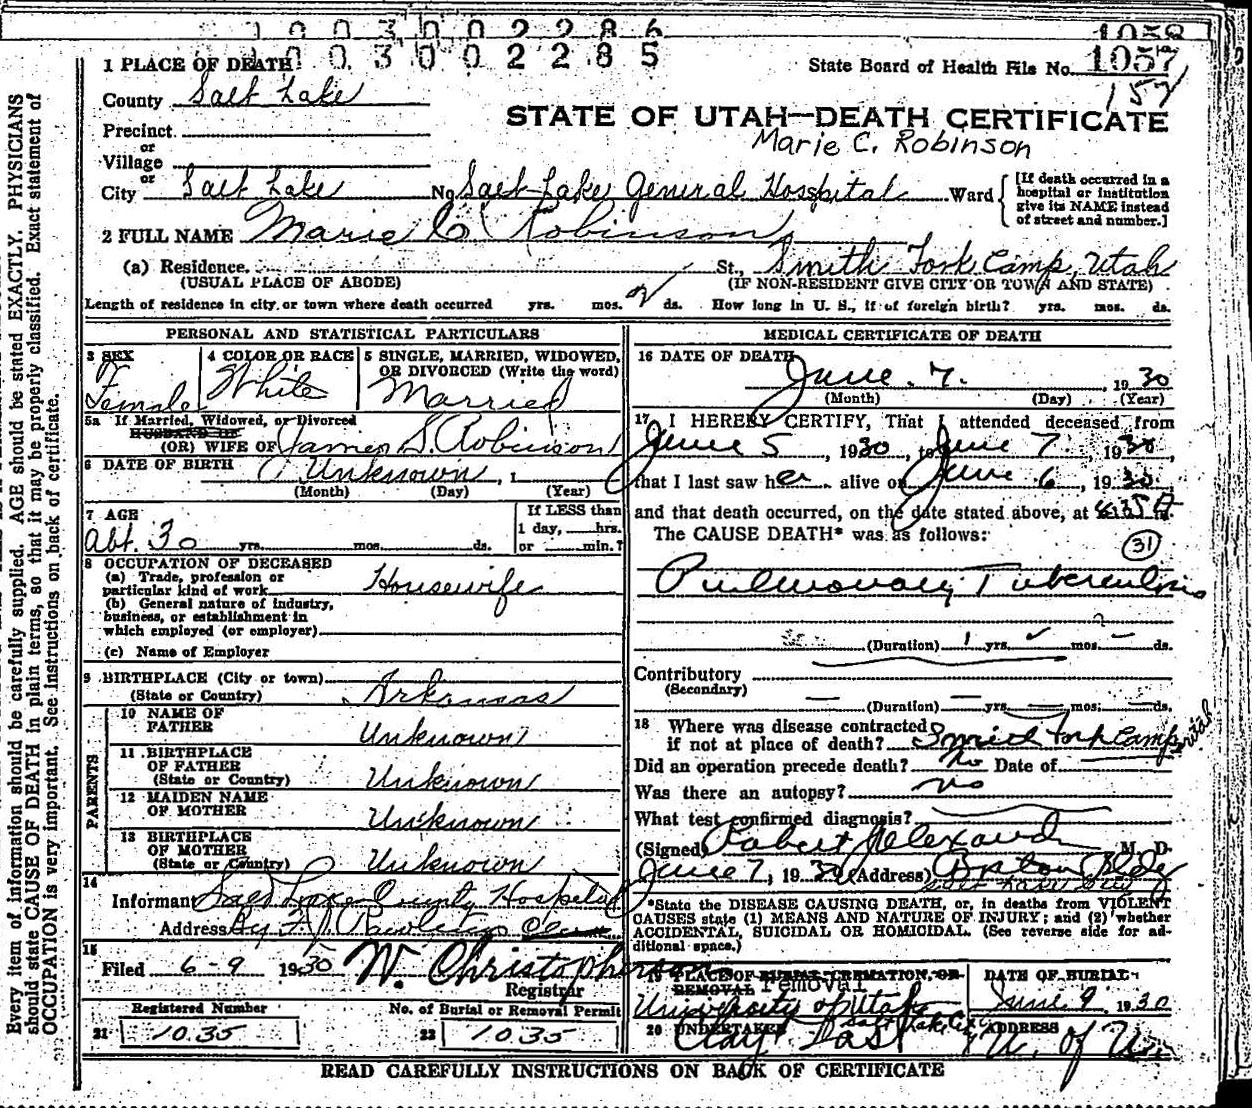 1003002286
1003002285
1058
1057
157
1 PLACE OF DEATH
State Board of Health File No. 1057
County Salt Lake
STATE OF UTAH—DEATH CERTIFICATE
Marie C. Robinson
Precinct
or
Village
or
City Salt Lake No. Salt Lake General Hospital Ward
[If death occurred in a
hospital or institution
give its NAME instead
of street and number.]
2 FULL NAME Marie C. Robinson
(a) Residence. St., Smith Fork Camp, Utah
(USUAL PLACE OF ABODE) (IF NON-RESIDENT GIVE CITY OR TOWN AND STATE)
Length of residence in city or town where death occurred yrs. mos. 2 ds. How long in U. S., if of foreign birth? yrs. mos. ds.
PERSONAL AND STATISTICAL PARTICULARS
3 SEX
Female
4 COLOR OR RACE
White
5 SINGLE, MARRIED, WIDOWED,
OR DIVORCED (Write the word)
Married
5a If Married, Widowed, or Divorced
HUSBAND OF
(OR) WIFE OF James S. Robinson
6 DATE OF BIRTH Unknown, 1
(Month) (Day) (Year)
7 AGE
Abt. 30 yrs. mos. ds.
If LESS than
1 day, hrs.
or min.?
8 OCCUPATION OF DECEASED
(a) Trade, profession or
particular kind of work Housewife
(b) General nature of industry,
business, or establishment in
which employed (or employer)
(c) Name of Employer
9 BIRTHPLACE (City or town)
(State or Country) Arkansas
PARENTS
10 NAME OF
FATHER Unknown
11 BIRTHPLACE
OF FATHER
(State or Country) Unknown
12 MAIDEN NAME
OF MOTHER Unknown
13 BIRTHPLACE
OF MOTHER
(State or Country) Unknown
14
Informant Salt Lake County Hospital
Address By F. J. Rawlings Clerk
15
Filed 6-9 1930 W. Christopherson
Registrar
Registered Number No. of Burial or Removal Permit
21 1035 22 1035
MEDICAL CERTIFICATE OF DEATH
16 DATE OF DEATH
June 7. 1930
(Month) (Day) (Year)
17 I HEREBY CERTIFY, That I attended deceased from
June 5, 1930, to June 7, 1930,
that I last saw her alive on June 6, 1930
and that death occurred, on the date stated above, at 6:35 A m.
The CAUSE DEATH* was as follows:
31
Pulmonary Tuberculosis
(Duration) 1 yrs. mos. ds.
Contributory
(Secondary)
(Duration) yrs. mos. ds.
18 Where was disease contracted
if not at place of death? Smith Fork Camp Utah
Did an operation precede death? No Date of
Was there an autopsy? No
What test confirmed diagnosis?
(Signed) Robert Alexander M. D.
June 7, 1930 (Address) Boston Bldg
Salt Lake City
*State the DISEASE CAUSING DEATH, or, in deaths from VIOLENT
CAUSES state (1) MEANS AND NATURE OF INJURY; and (2) whether
ACCIDENTAL, SUICIDAL OR HOMICIDAL. (See reverse side for ad-
ditional space.)
19 PLACE OF BURIAL, CREMATION, OR
REMOVAL removal
University of Utah
Salt Lake City
DATE OF BURIAL
June 9 1930
20 UNDERTAKER
ADDRESS
U. of U.
READ CAREFULLY INSTRUCTIONS ON BACK OF CERTIFICATE
Every item of information should be carefully supplied. AGE should be stated EXACTLY. PHYSICIANS
should state CAUSE OF DEATH in plain terms, so that it may be properly classified. Exact statement of
OCCUPATION is very important. See instructions on back of certificate.